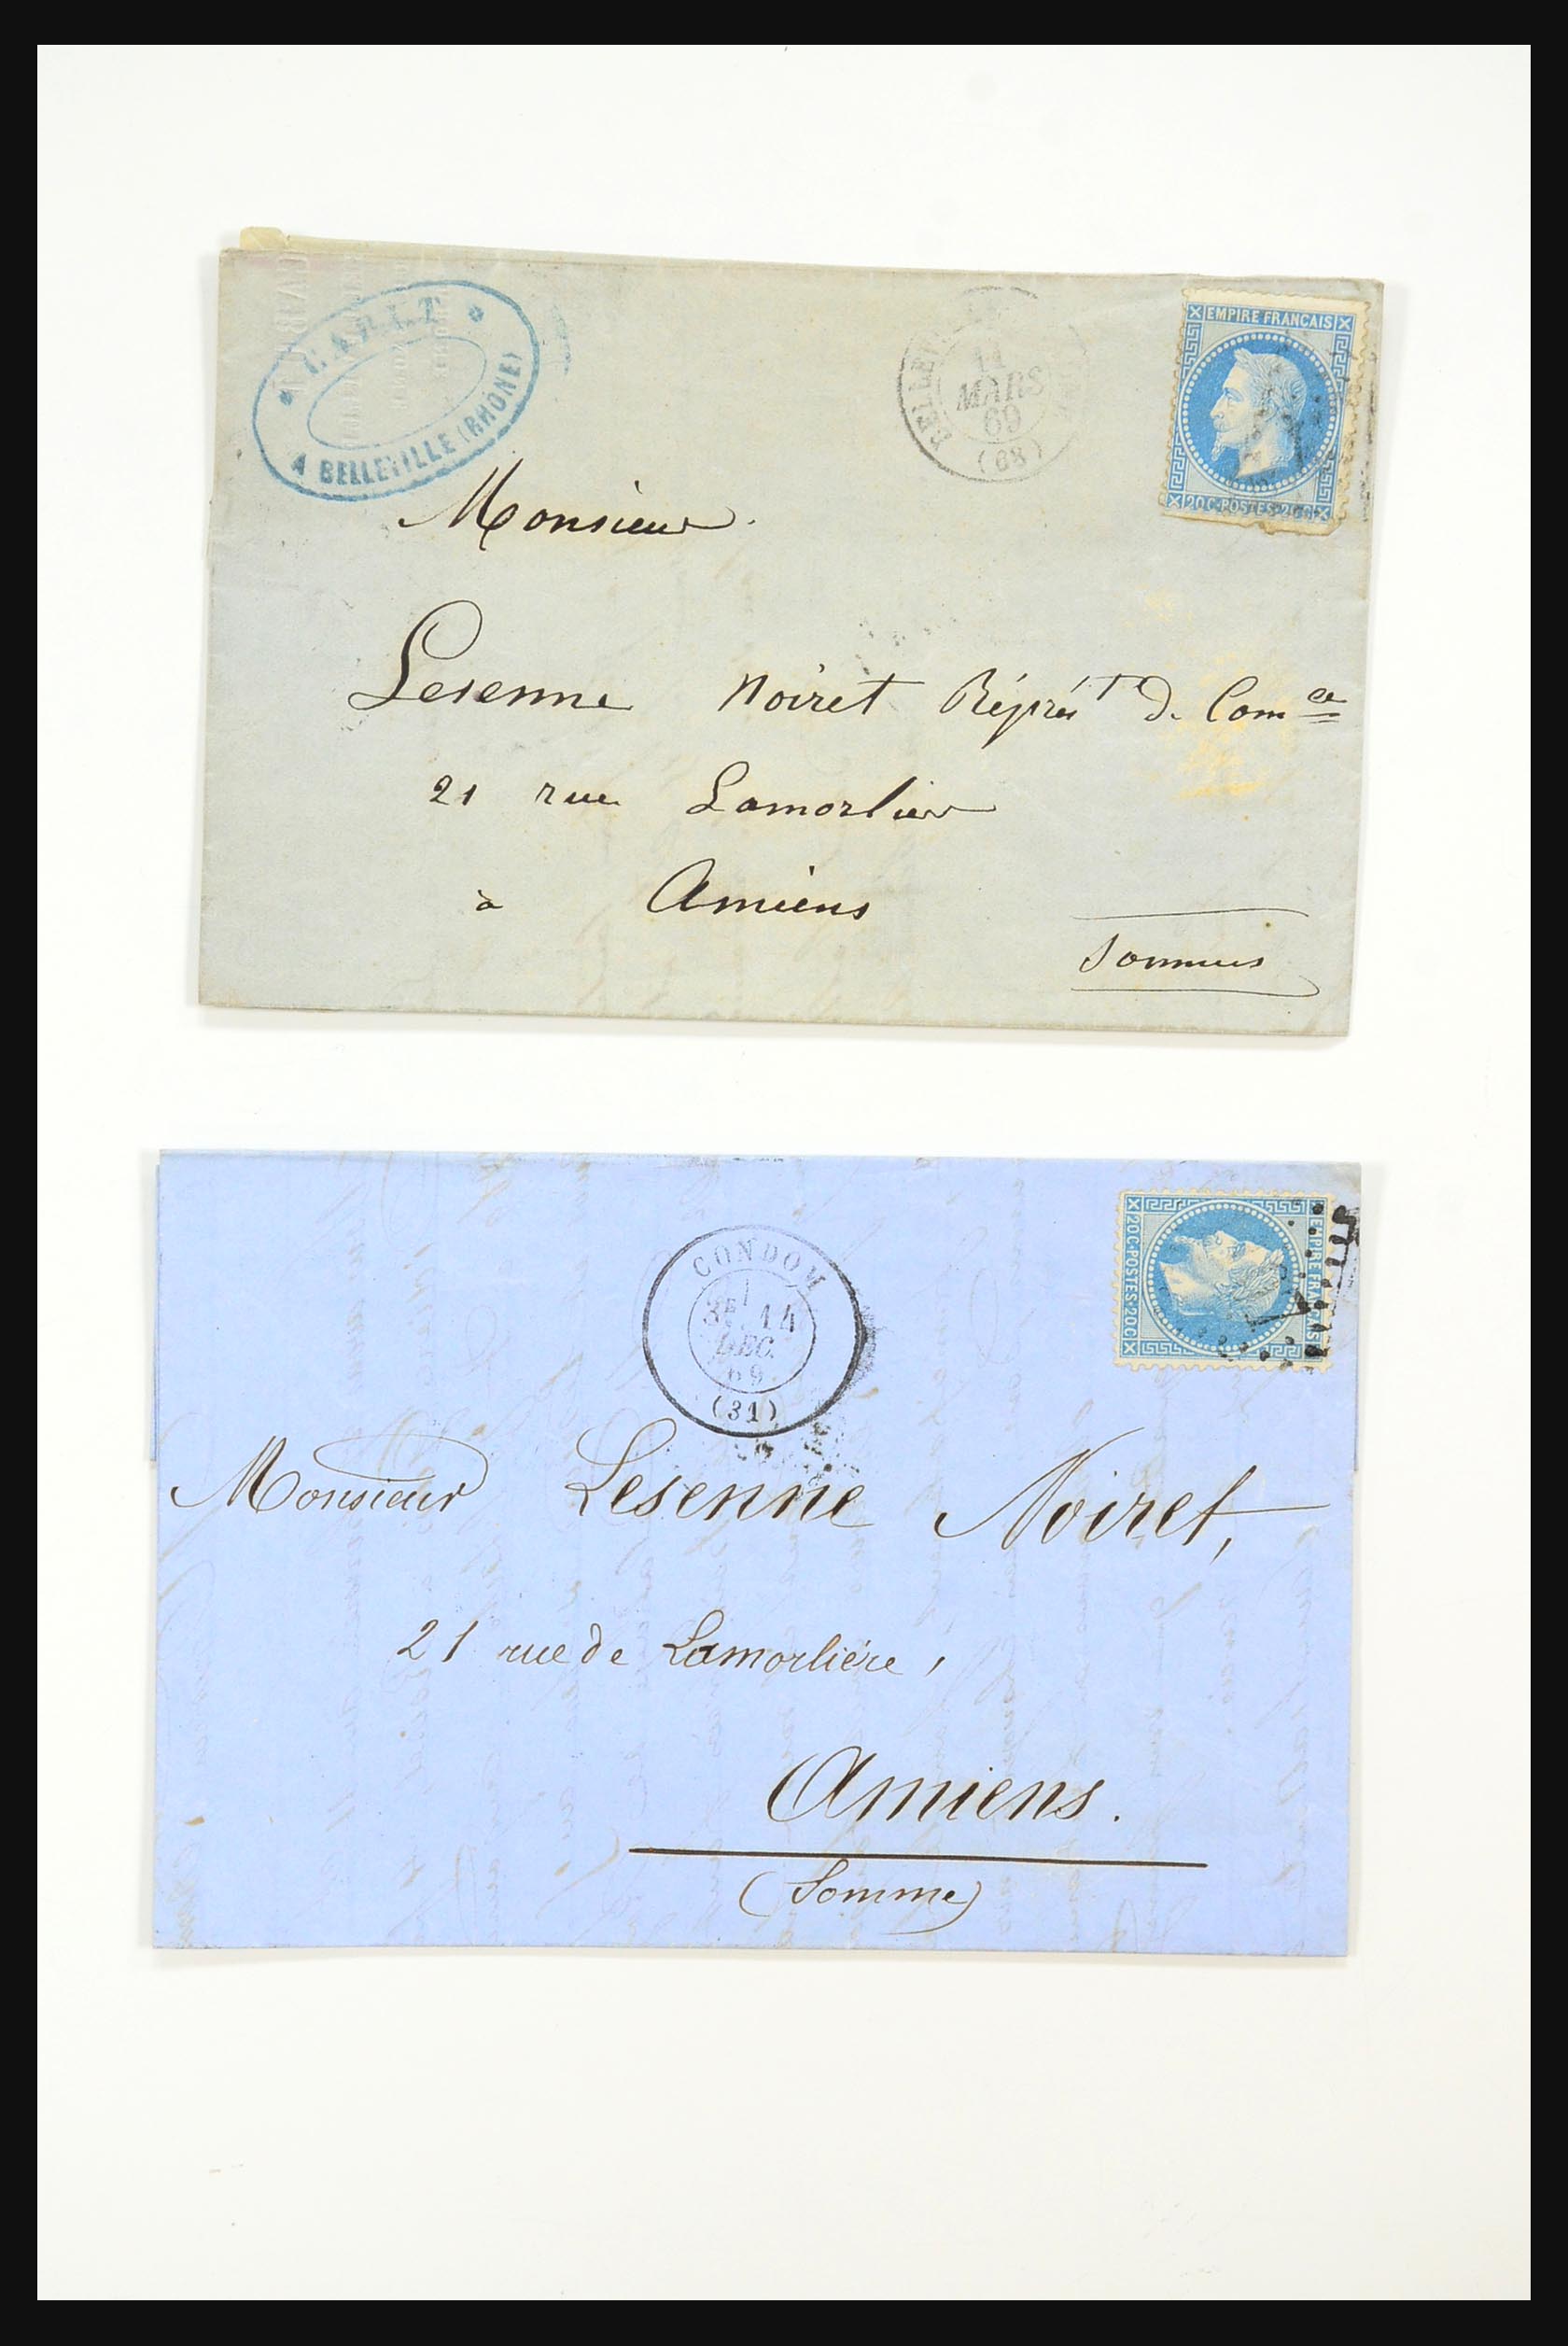 A BELLEVILLE (RHÔNE)
11
MARS
69
(68)
EMPIRE FRANCAIS
20C·POSTES·20C
Monsieur
Lesenne Noiret Réprést de Comce
21 rue Lamorlier
à Amiens
CONDOM
3E 14
DEC.
69
(31)
EMPIRE FRANCAIS
20C·POSTES·20C
Monsieur Lesenne Noiret,
21 rue de Lamorlière,
Amiens.
(Somme)